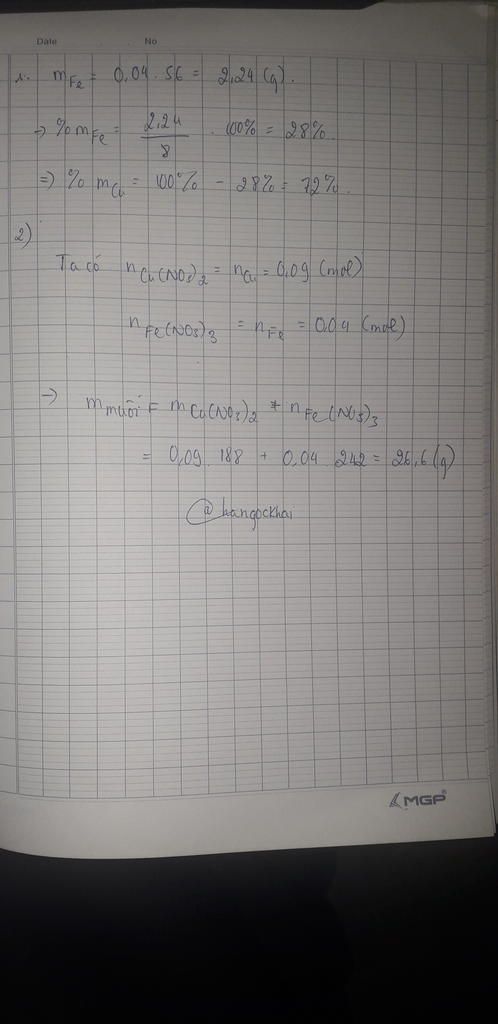 Date No
1. mFe = 0,04 . 56 = 2,24 (g).
→ % mFe = 2,24 / 8 . 100% = 28%.
=> % mCu = 100% - 28% = 72%.
2)
Ta có nCu(NO3)2 = nCu = 0,09 (mol)
nFe(NO3)3 = nFe = 0,04 (mol)
→ m muối = mCu(NO3)2 + nFe(NO3)3
= 0,09 . 188 + 0,04 . 242 = 26,6 (g)
@hangockhai
MGP